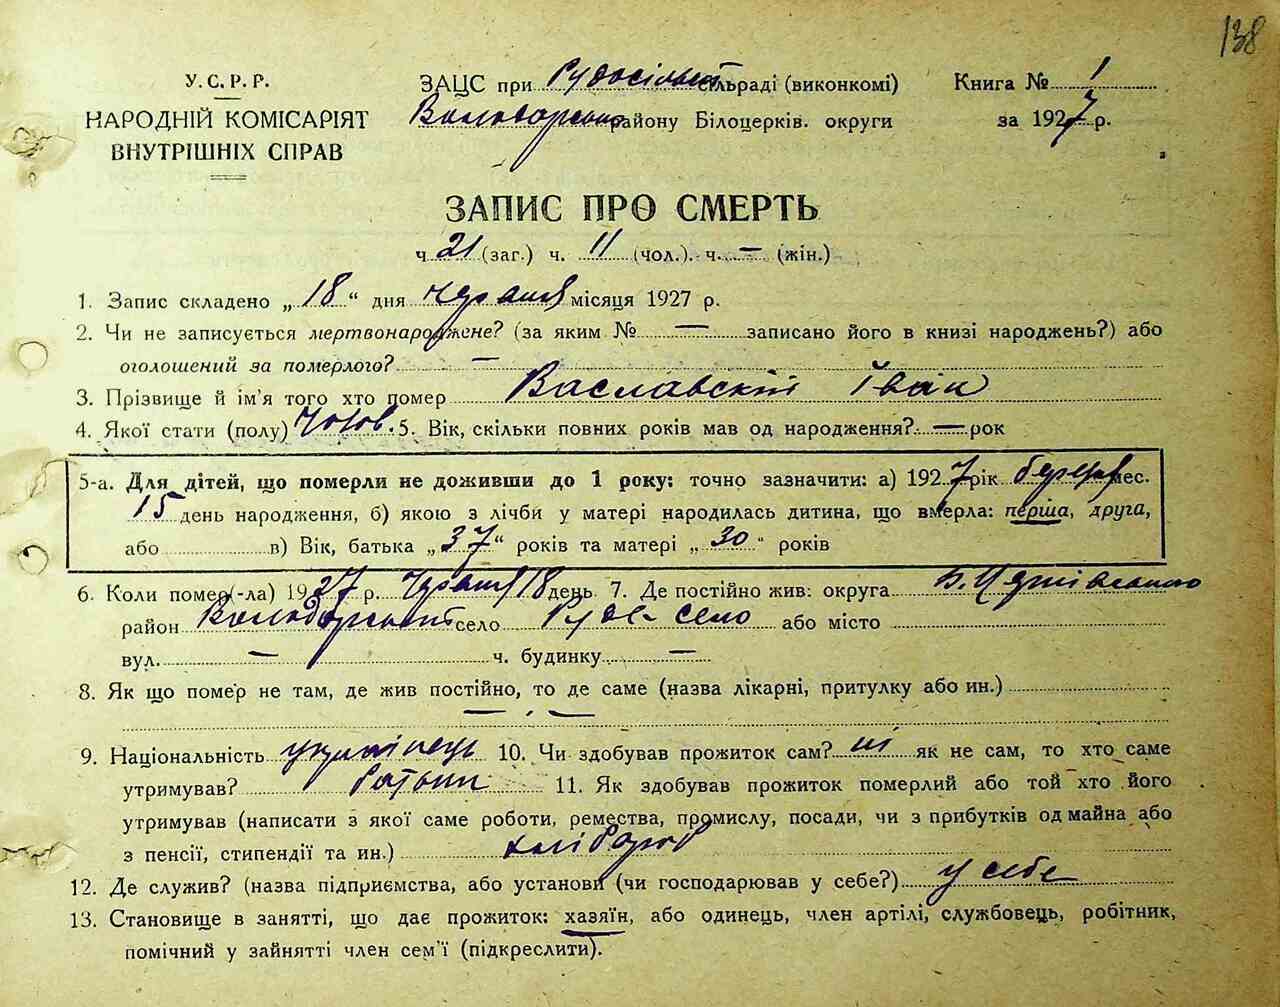 138
У.С.Р.Р.
НАРОДНІЙ КОМІСАРІЯТ
ВНУТРІШНІХ СПРАВ
ЗАЦС при Рудосільскій сільраді (виконкомі)
Володарського району Білоцерків. округи
Книга № 1
за 1927 р.
ЗАПИС ПРО СМЕРТЬ
ч. 21 (заг.) ч. 11 (чол.). ч. — (жін.)
1. Запис складено „18“ дня червня місяця 1927 р.
2. Чи не записується мертвонароджене? (за яким № — записано його в книзі народжень?) або
оголошений за померлого? —
3. Прізвище й ім'я того хто помер Ваславскій Іван
4. Якої стати (полу) Чолов. 5. Вік, скільки повних років мав од народження? — рок
5-а. Для дітей, що померли не доживши до 1 року: точно зазначити: а) 1927 рік березня мес.
15 день народження, б) якою з лічби у матері народилась дитина, що вмерла: перша, друга,
або в) Вік, батька „37“ років та матері „30“ років
6. Коли помер(-ла) 1927 р. червня 18 день 7. Де постійно жив: округа Б. Церківського
район Володарський село Руде село або місто
вул. — ч. будинку —
8. Як що помер не там, де жив постійно, то де саме (назва лікарні, притулку або ин.)
— . —
9. Національність українець 10. Чи здобував прожиток сам? ні як не сам, то хто саме
утримував? батьки 11. Як здобував прожиток померлий або той хто його
утримував (написати з якої саме роботи, ремества, промислу, посади, чи з прибутків од майна або
з пенсії, стипендії та ин.) хлібороб
12. Де служив? (назва підприємства, або установи (чи господарював у себе?) у себе
13. Становище в занятті, що дає прожиток: хазяїн, або одинець, член артілі, службовець, робітник,
помічний у зайнятті член сем'ї (підкреслити).